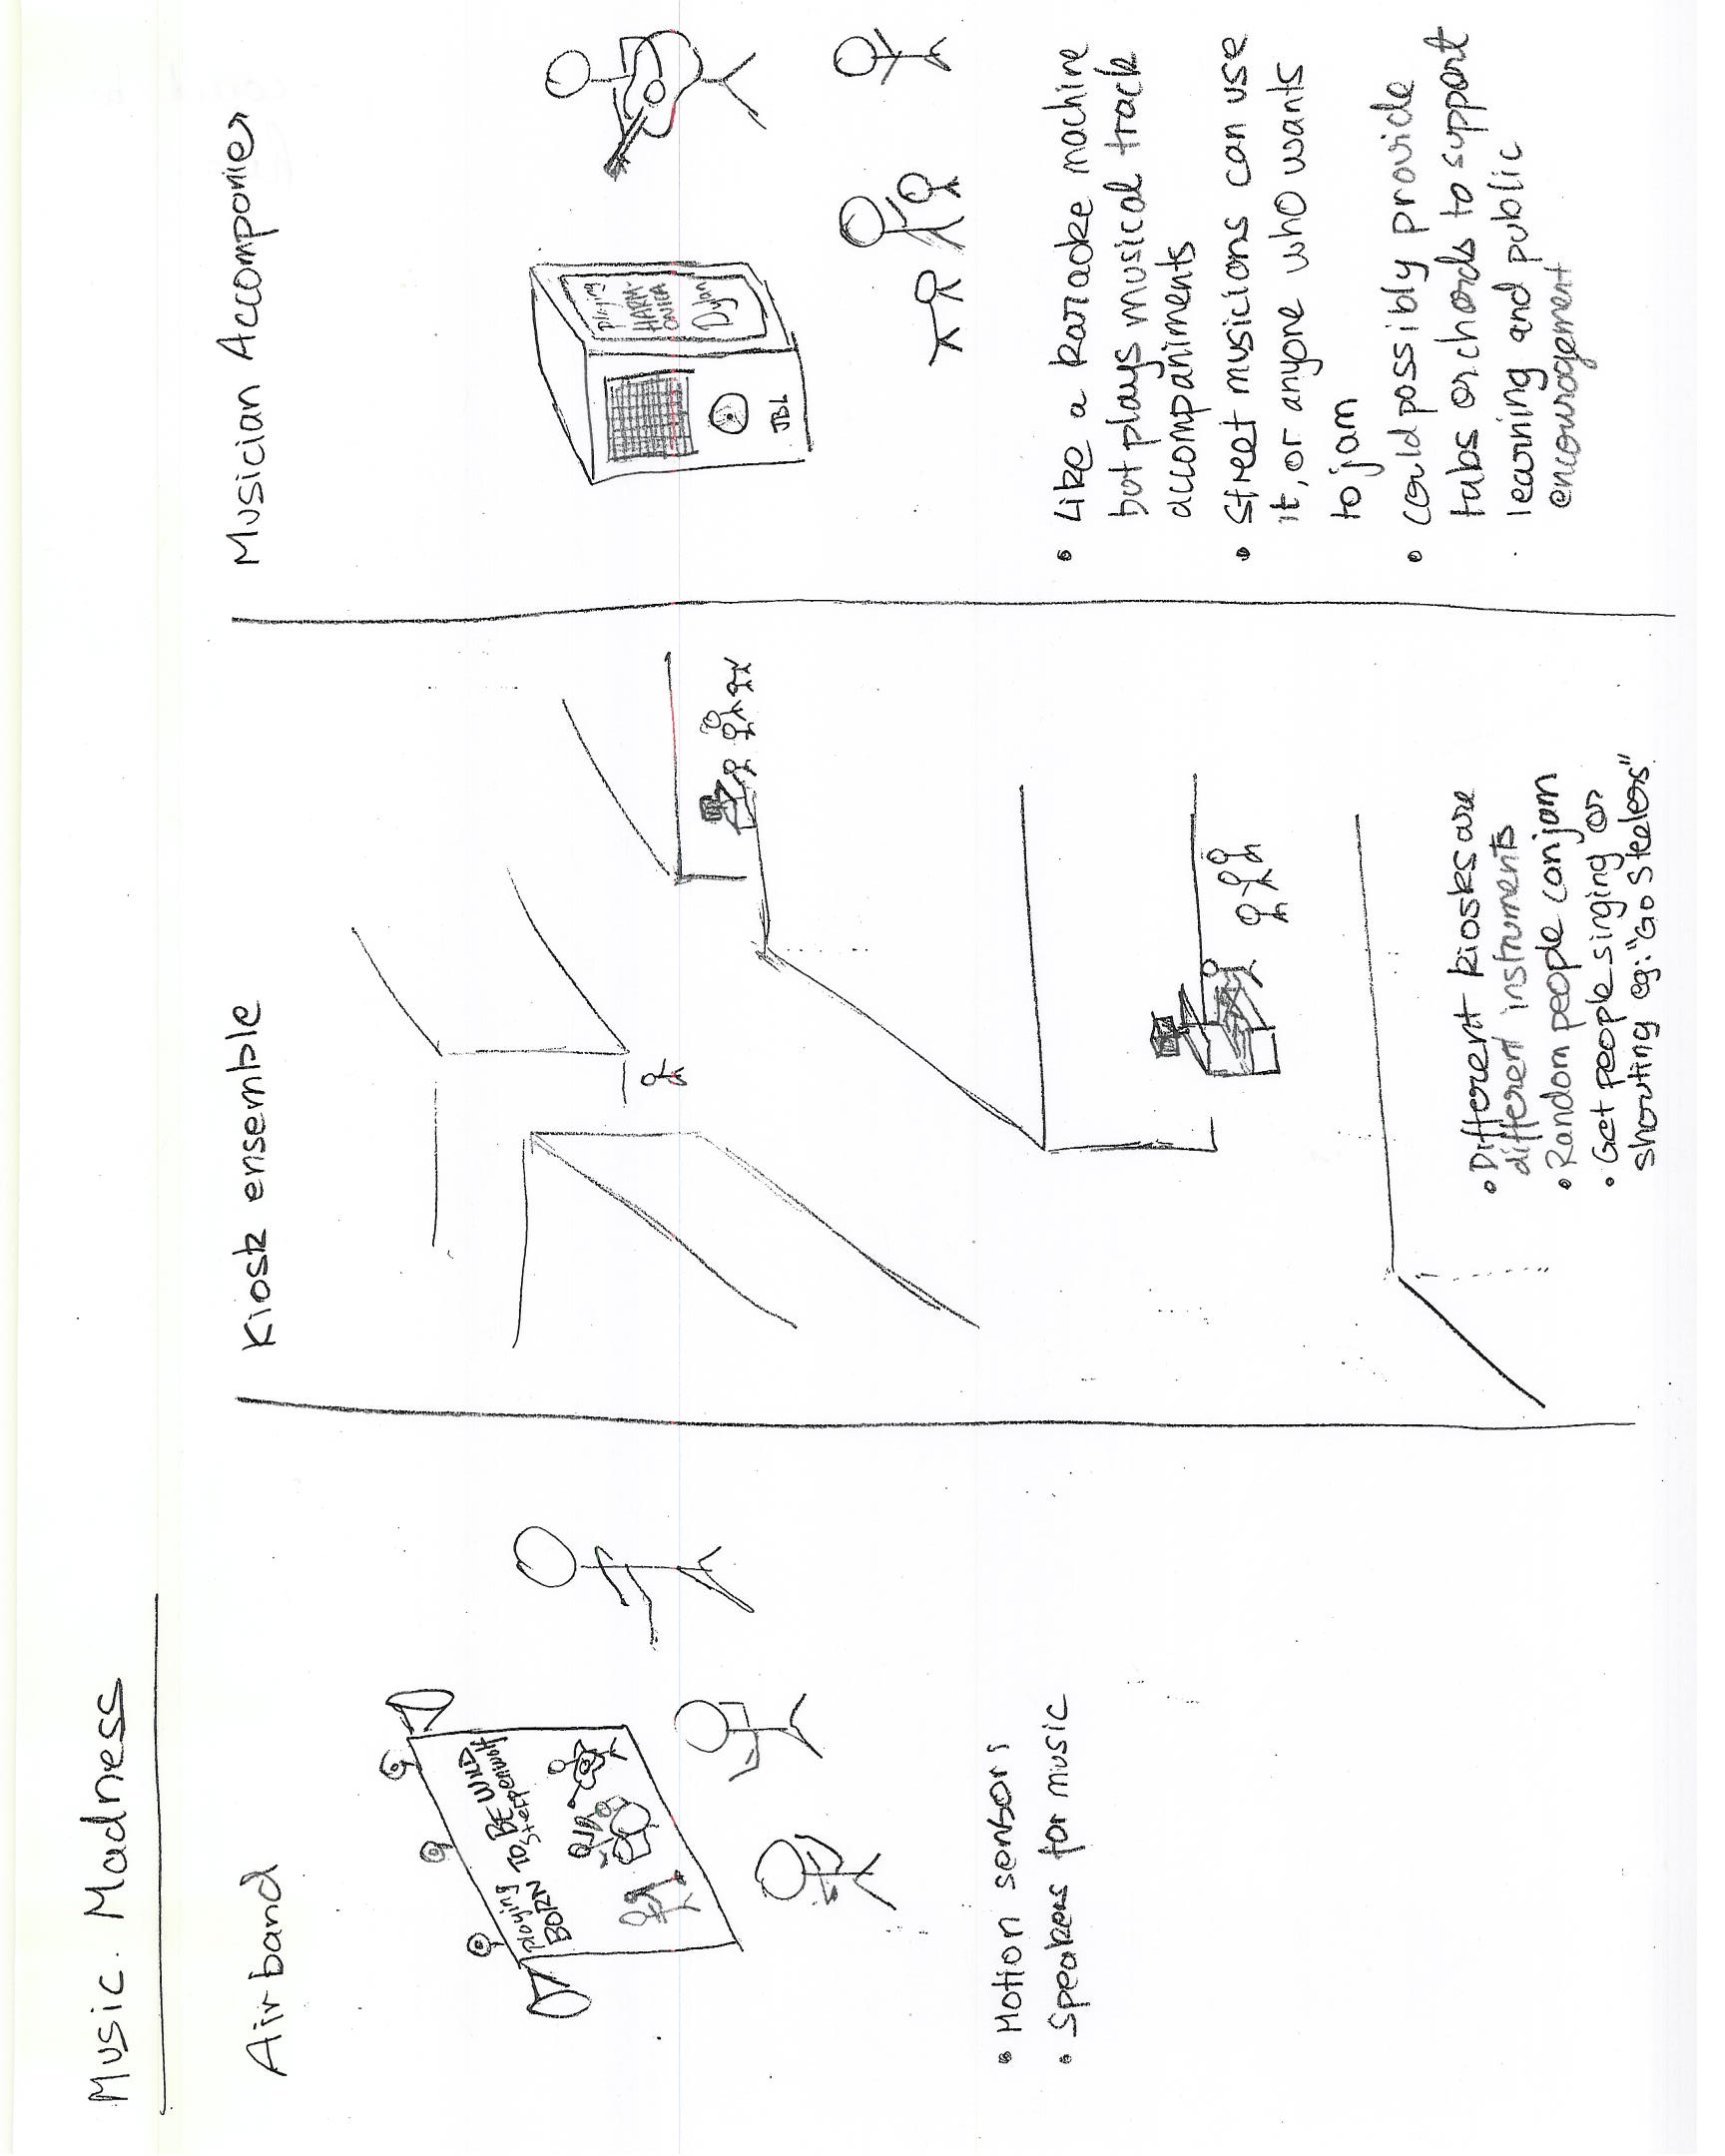 Music Madness
Air band
playing TO
BORN TO BE WILD
Steppenwolf
• Motion sensors
• Speakers for music
Kiosk ensemble
• Different kiosks are
different instruments
• Random people can jam
• Get people singing or
shouting eg: "Go Steelers"
Musician Accompanier
playing
HARM-
ONICA
Dylan
JBL
• Like a karaoke machine
but plays musical track
accompaniments
• Street musicians can use
it, or anyone who wants
to jam
• could possibly provide
tabs or chords to support
learning and public
encouragement